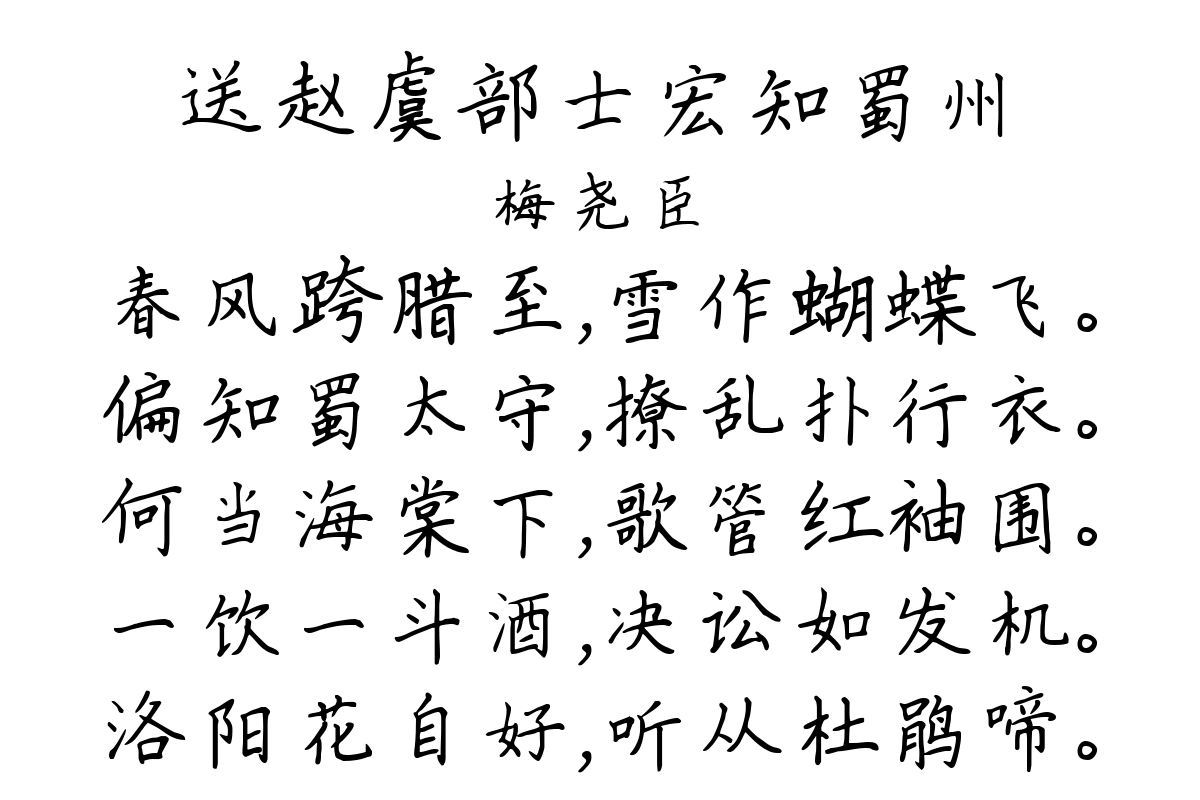 送赵虞部士宏知蜀州
梅尧臣
春风跨腊至,雪作蝴蝶飞。
偏知蜀太守,撩乱扑行衣。
何当海棠下,歌管红袖围。
一饮一斗酒,决讼如发机。
洛阳花自好,听从杜鹃啼。